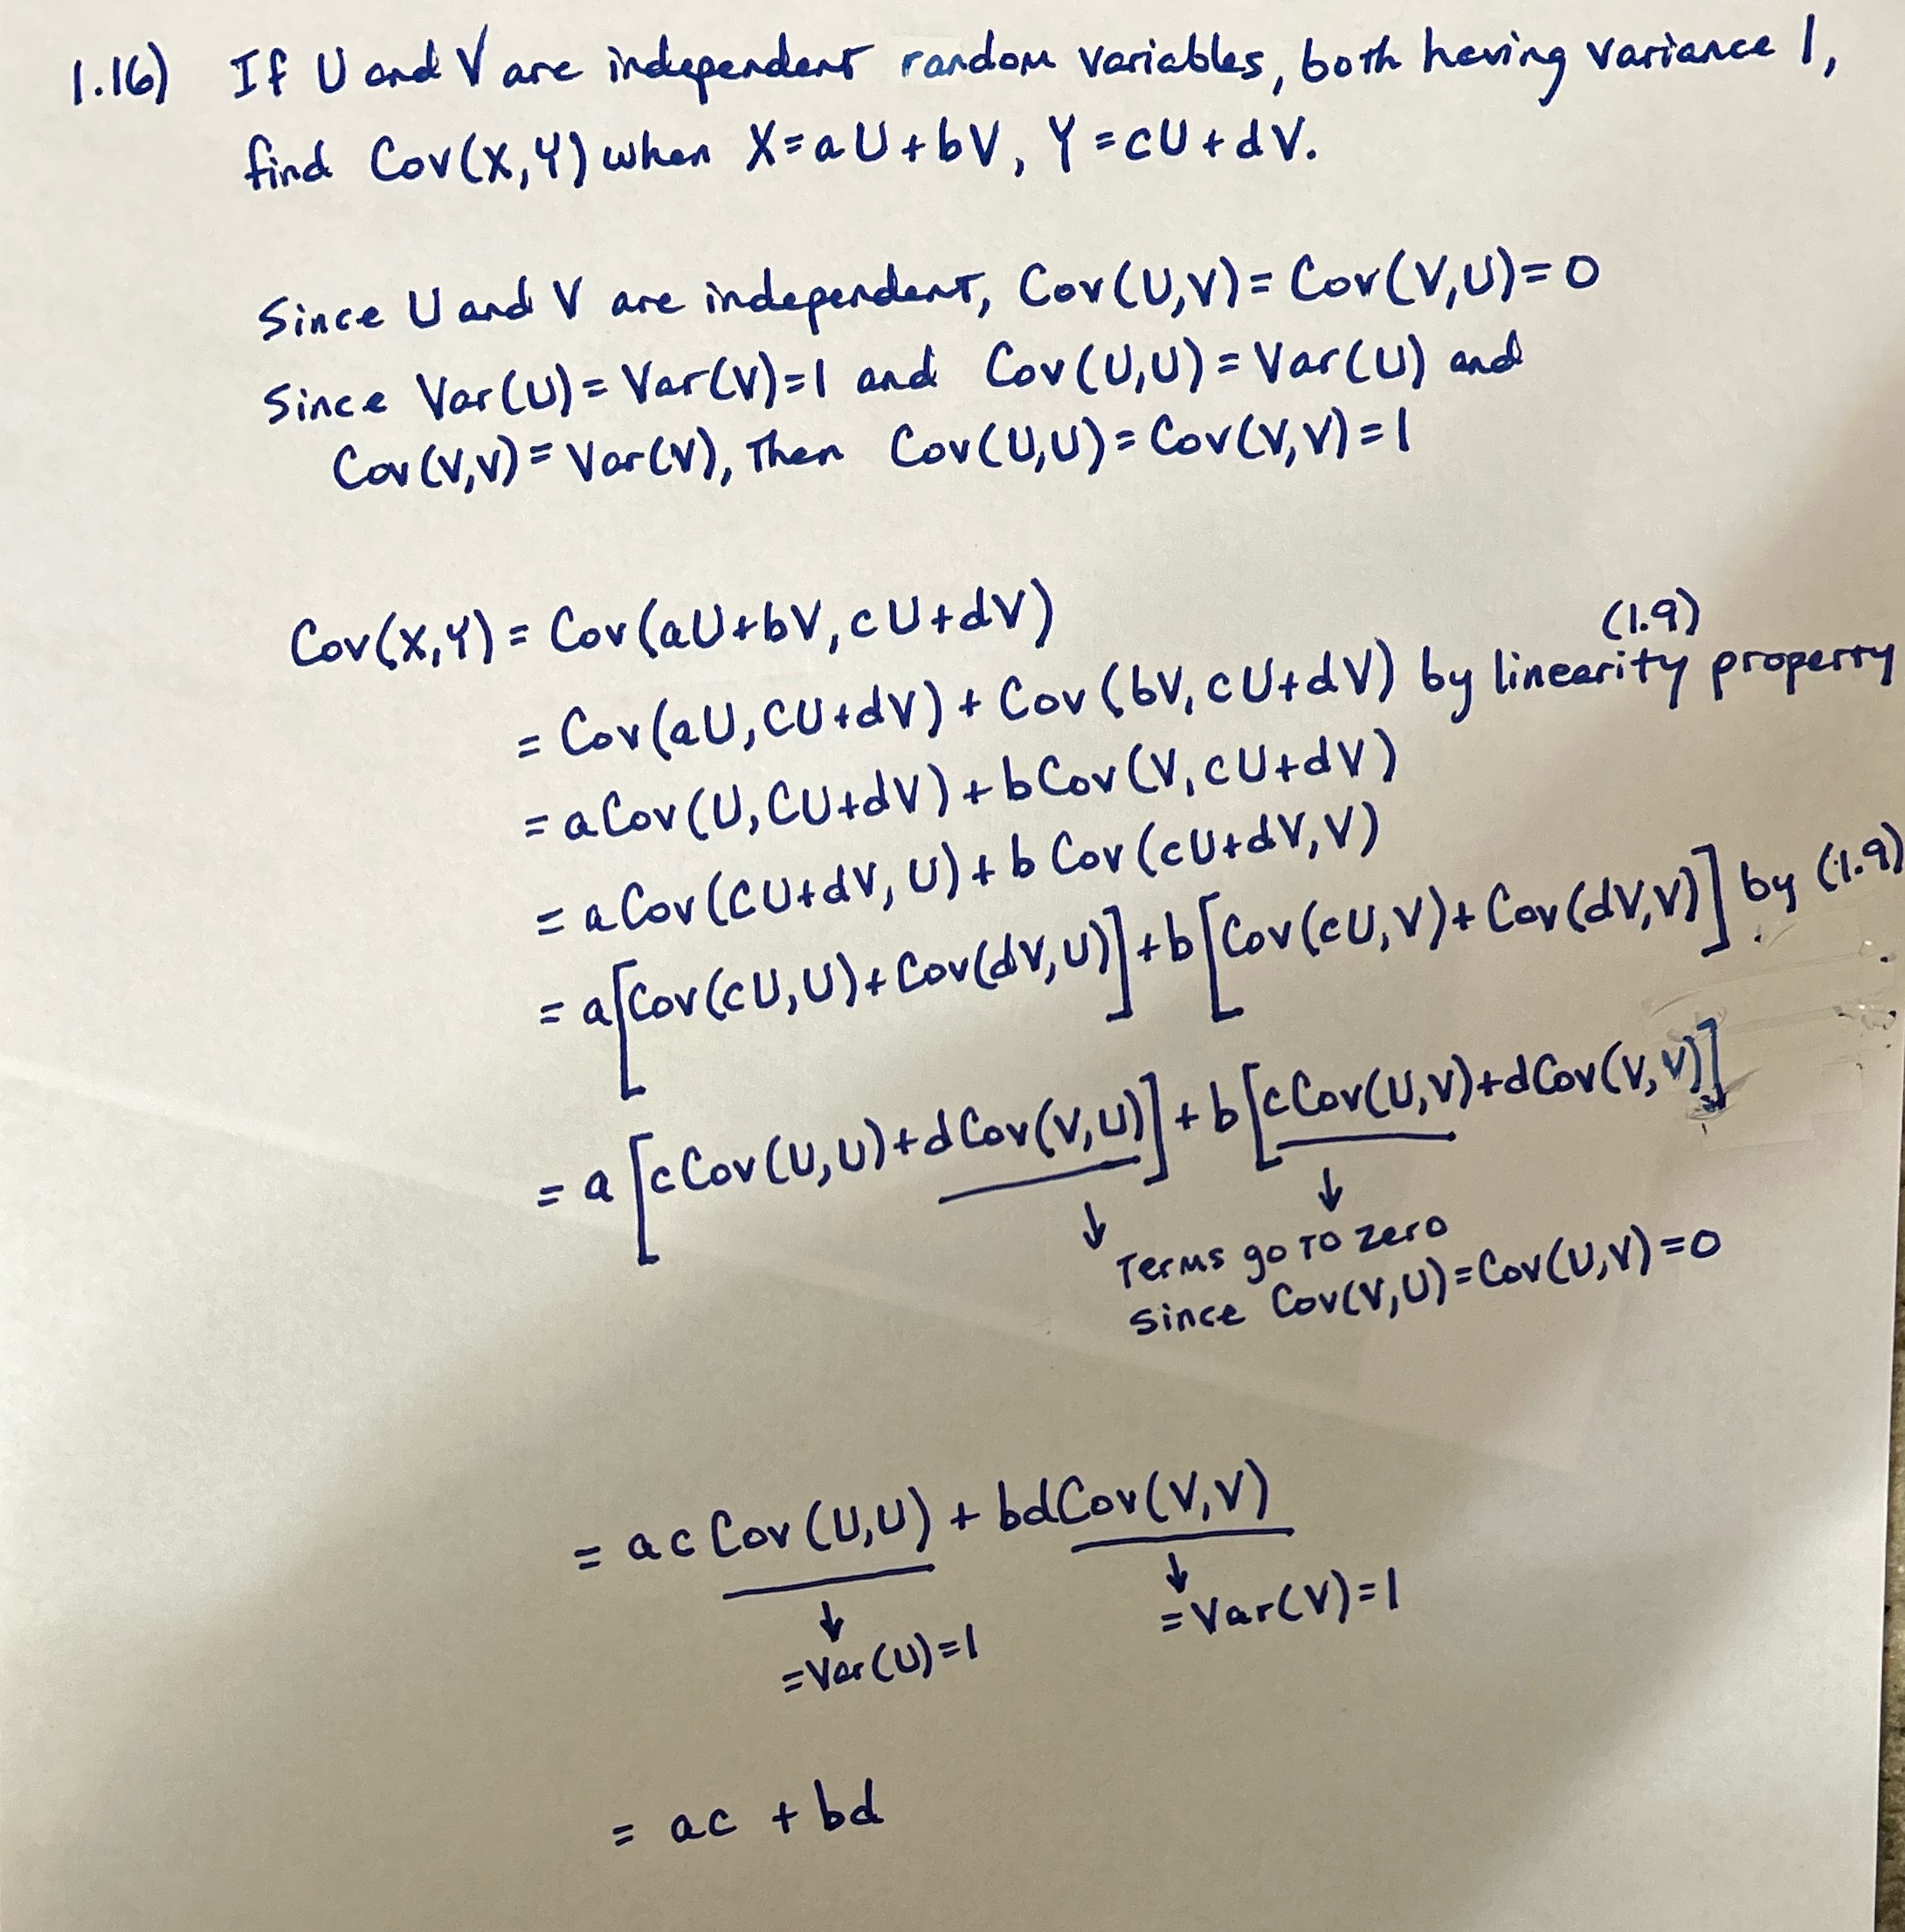 1.16) If U and V are independent random variables, both having variance 1,
find Cov(X,Y) when X=aU+bV, Y=cU+dV.
Since U and V are independent, Cov(U,V)=Cov(V,U)=0
Since Var(U)=Var(V)=1 and Cov(U,U)=Var(U) and
Cov(V,V)=Var(V), Then Cov(U,U)=Cov(V,V)=1
Cov(X,Y)=Cov(aU+bV,cU+dV)
(1.9)
=Cov(aU,CU+dV)+Cov(bV,cU+dV) by linearity property
=aCov(U,CU+dV)+bCov(V,cU+dV)
=aCov(CU+dV,U)+bCov(cU+dV,V)
=a[Cov(cU,U)+Cov(dV,U)]+b[Cov(cU,V)+Cov(dV,V)] by (1.9)
=a[cCov(U,U)+dCov(V,U)]+b[cCov(U,V)+dCov(V,V)]
↓ ↓
Terms go to zero
since Cov(V,U)=Cov(U,V)=0
=acCov(U,U)+bdCov(V,V)
↓ ↓
=Var(U)=1 =Var(V)=1
=ac+bd